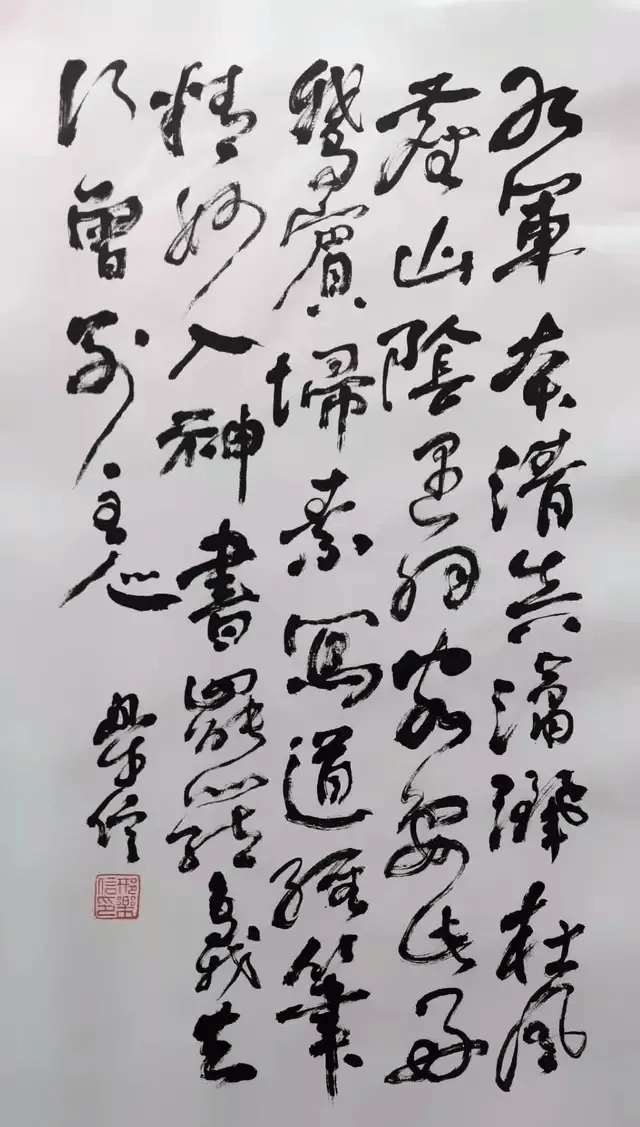 右軍本清真瀟灑在風
塵山陰遇羽客要此好
鵝賓掃素寫道經筆
精妙入神書罷籠鵝去
何曾別主人
樂信
邢樂信印